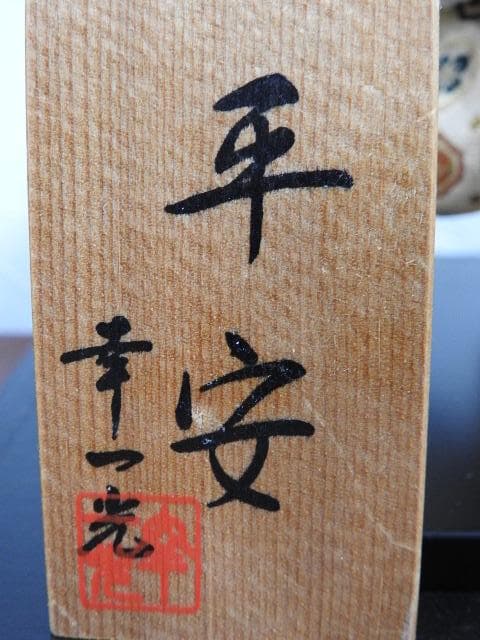 平安
幸一光